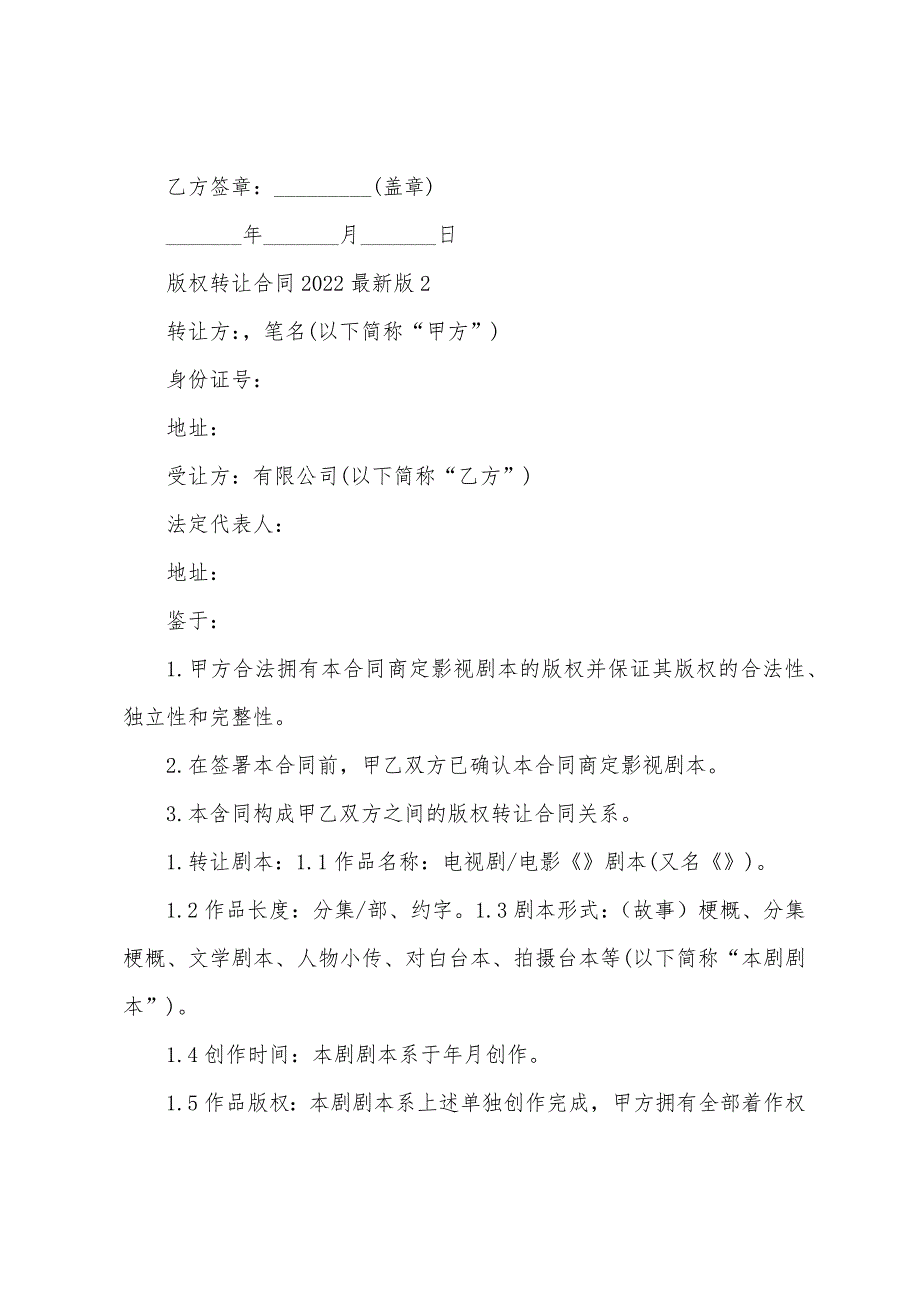 乙方签章：_________(盖章)
_______年_______月_______日
版权转让合同2022最新版2
转让方:，笔名(以下简称“甲方”)
身份证号：
地址：
受让方：有限公司(以下简称“乙方”)
法定代表人：
地址：
鉴于：
1.甲方合法拥有本合同商定影视剧本的版权并保证其版权的合法性、
独立性和完整性。
2.在签署本合同前，甲乙双方已确认本合同商定影视剧本。
3.本含同构成甲乙双方之间的版权转让合同关系。
1.转让剧本：1.1作品名称：电视剧/电影《》剧本(又名《》)。
1.2作品长度：分集/部、约字。1.3剧本形式：（故事）梗概、分集
梗概、文学剧本、人物小传、对白台本、拍摄台本等(以下简称“本剧剧
本”)。
1.4创作时间：本剧剧本系于年月创作。
1.5作品版权：本剧剧本系上述单独创作完成，甲方拥有全部着作权